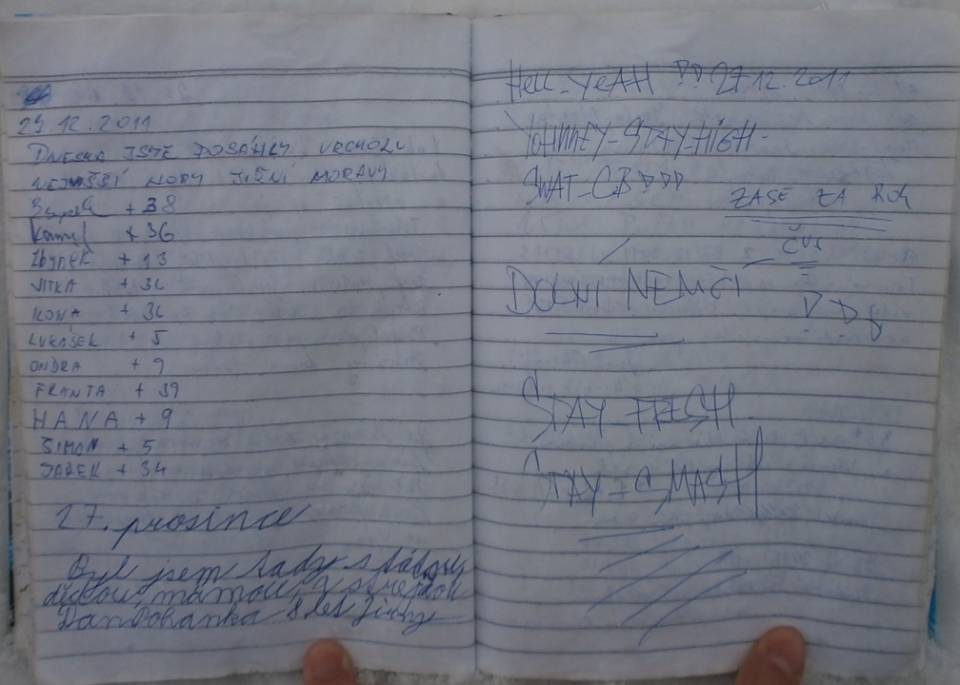 29 12.2011
DNESKA JSTE DOSÁHLY VRCHOLU
NEJVYŠŠÍ HORY JIŽNÍ MORAVY
+ 38
Kamil + 36
Zbyněk + 13
JITKA + 36
ILONA + 36
LUKÁŠEK + 5
ONDRA + 9
FRANTA + 39
HANA + 9
ŠIMON + 5
JAREK + 34
27. prosince
Byl jsem tady s
dědou, mamou, a strejdou
Dan Pohanka 8 let
Hell_YeAH DD 27.12.2011
YOHNNEY-STAY-HIGH-
SWAT-CB DDD
ZASE ZA ROK
ČUS
DOLNÍ NEMČÍ
STAY FRESH
STAY + SMASH